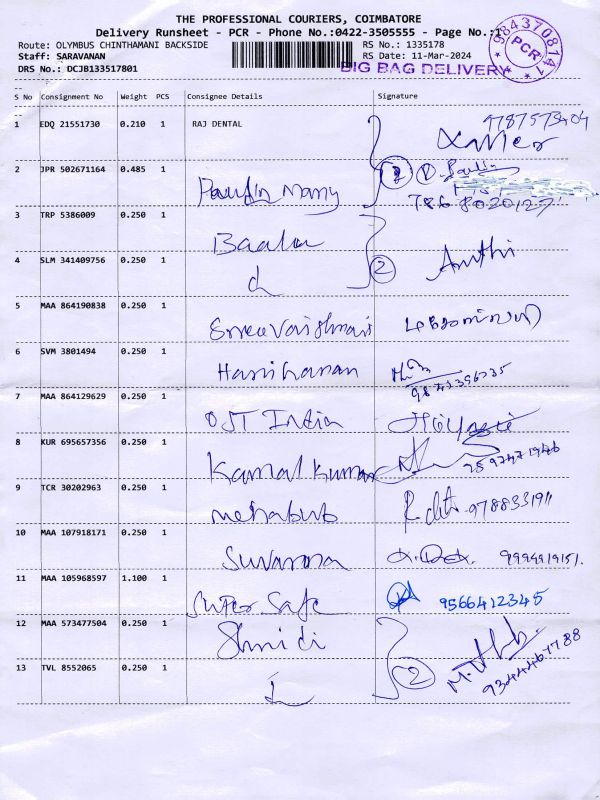 THE PROFESSIONAL COURIERS, COIMBATORE
Delivery Runsheet - PCR - Phone No.:0422-3505555 - Page No.:1
Route: OLYMBUS CHINTHAMANI BACKSIDE RS No.: 1335178
Staff: SARAVANAN RS Date: 11-Mar-2024
DRS No.: DCJB133517801 BIG BAG DELIVERY
9843708141
PCR
S No Consignment No Weight PCS Consignee Details Signature
1 EDQ 21551730 0.210 1 RAJ DENTAL 9787573404
Xavier
2 JPR 502671164 0.485 1 2
7868020127
3 TRP 5386009 0.250 1 Baalu
4 SLM 341409756 0.250 1 2 Amthi
5 MAA 864190838 0.250 1 Sreevaishnavi
6 SVM 3801494 0.250 1 Hariharan
7 MAA 864129629 0.250 1 OJT India
8 KUR 695657356 0.250 1 Kamal Kumar
9 TCR 30202963 0.250 1 mehabub 9788331911
10 MAA 107918171 0.250 1 Suvarna 9994919151.
11 MAA 105968597 1.100 1 Super Safe 9566412345
12 MAA 573477504 0.250 1
13 TVL 8552065 0.250 1 2 9344467788